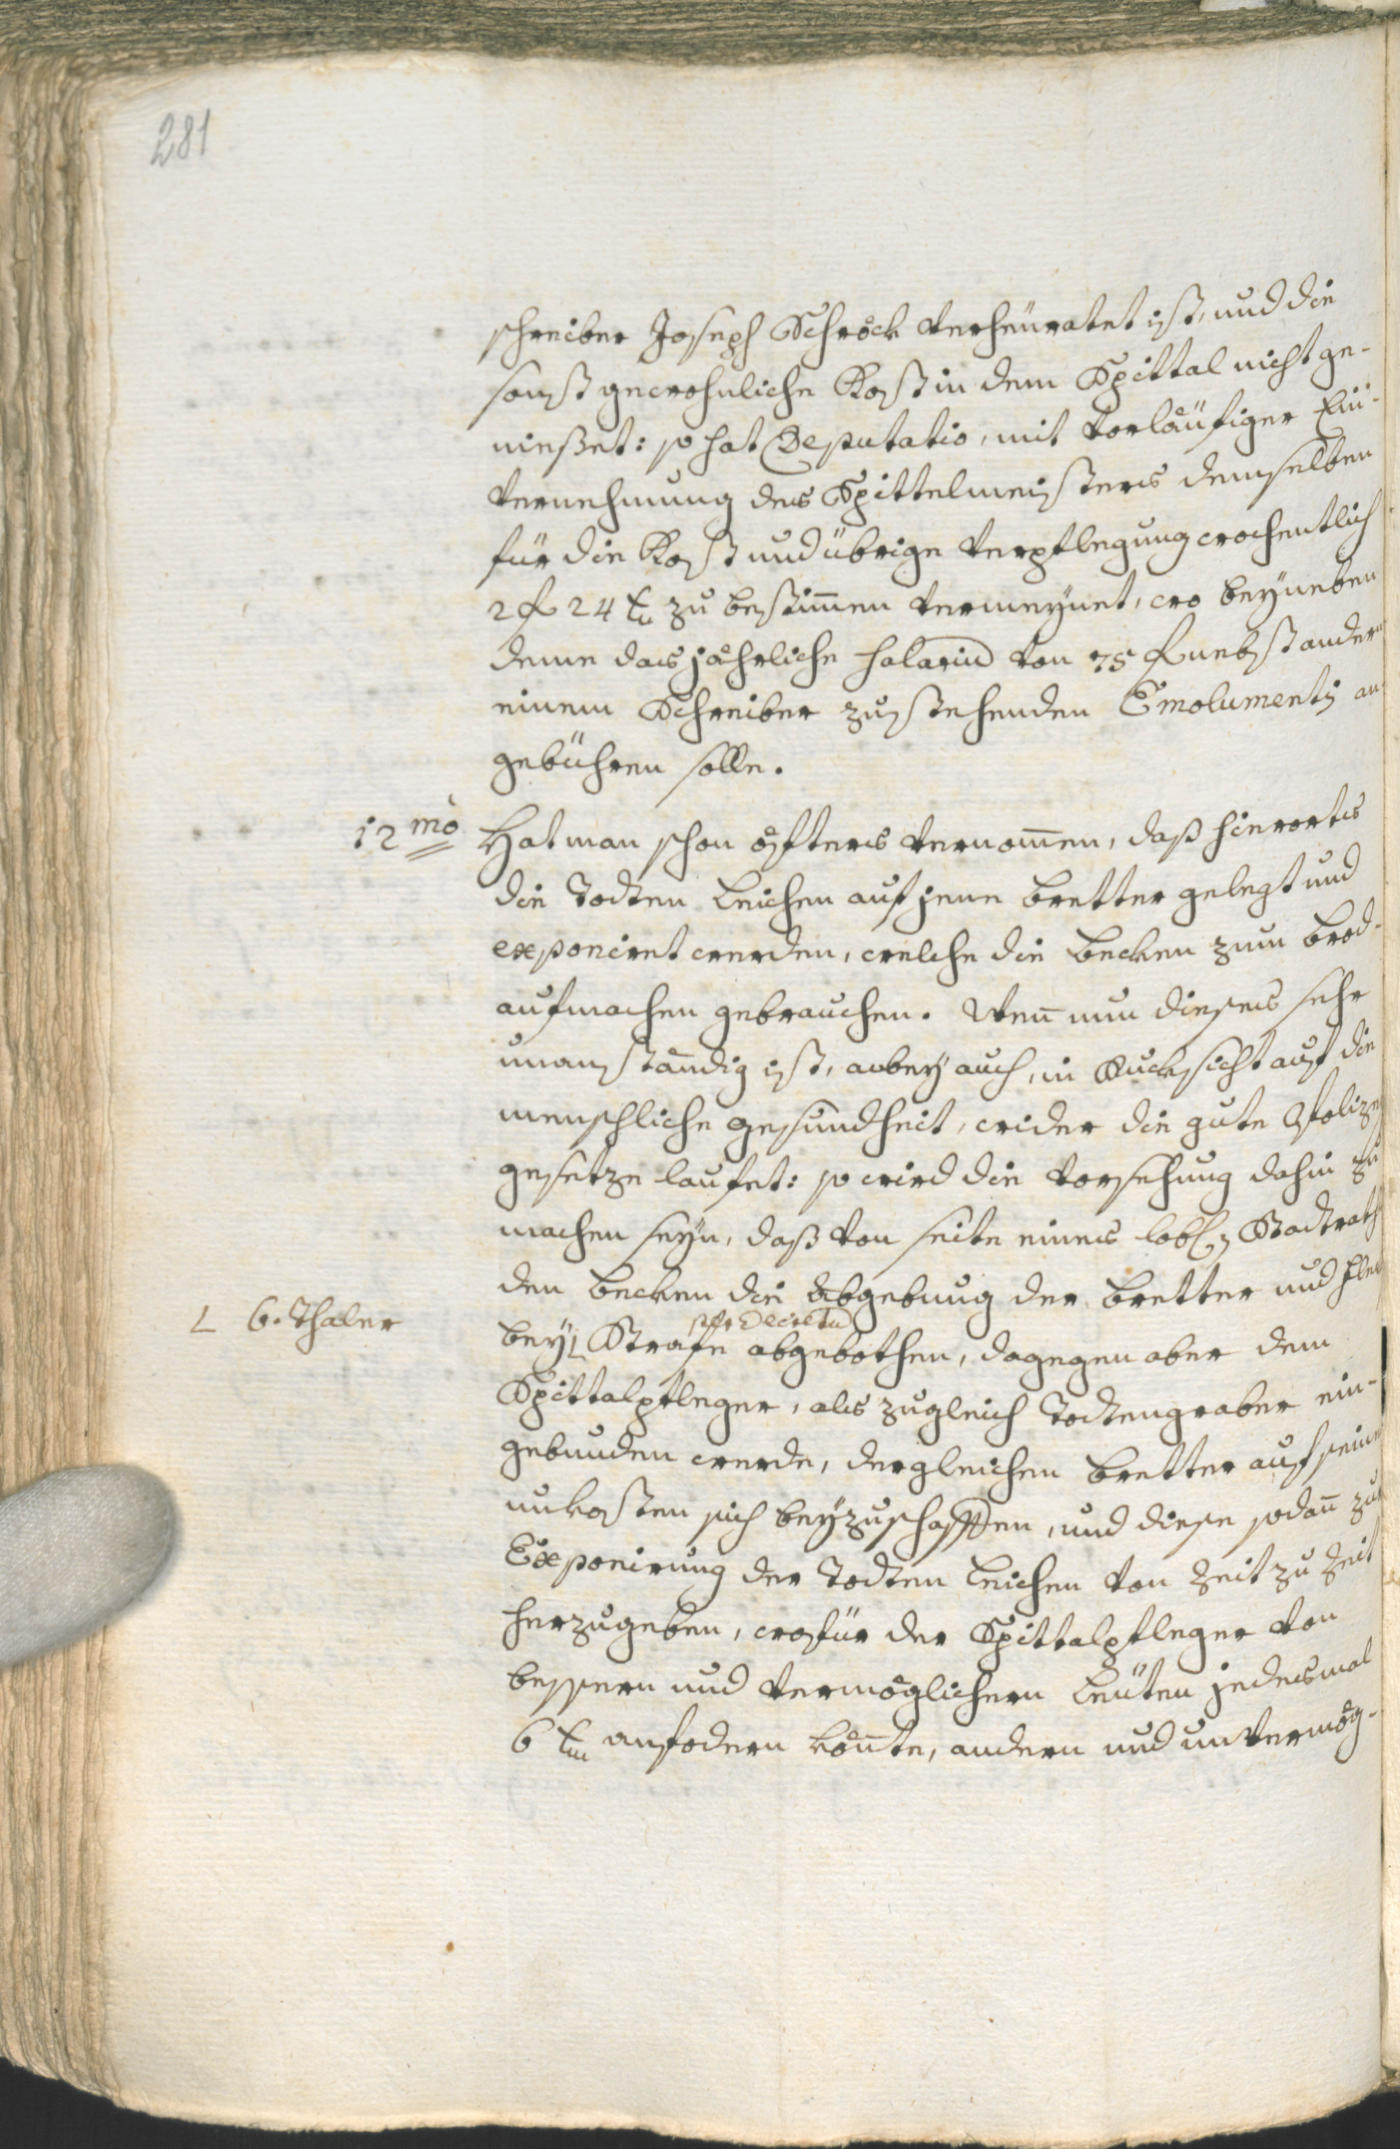 281
schreiber Joseph Schröck verheüratet ist, und die
sonst gewohnliche Kost in dem Spittal nicht ge-
niesset: so hat Deputatio, mit vorläufiger Ein-
vernehmung des Spittelmeisters demselben
für die Kost und übrige Verpflegung wochentlich
2 f 24 xr zu bestimen vermeynet, wo beyneben
deme das jährliche Salariu von 75 f nebst ander
einem Schreiber zustehenden Emolumentis an
gebühren solle.
12mo Hat man schon öfters vernomen, daß hierorts
die Todten Leichen auf jene Bretter gelegt und
exponiret werden, welche die Becken zum Brod-
aufmachen gebrauchen. Wen nun dieses sehr
unanständig ist, anbey auch, in Rucksicht auf die
menschliche Gesundheit, wider die gute Polizey
gesetze laufet: so wird die Vorsehung dahin zu
machen seyn, daß von seite eines löbl. Stadtrath
den Becken die Abgebung der Bretter und
L 6. Thaler
per Decretu
bey L Strafe abgebothen, dagegen aber dem
Spittalpfleger, als zugleich Todtengraber ein-
gebunden werde, dergleichen Bretter auf seine
unkosten sich beyzuschaffen, und diese sodan zu
Exponirung der Todten Leichen von Zeit zu Zeit
herzugeben, wofür der Spittalpfleger von
bessern und vermöglichern Leüten jedesmal
6 xr anfodern könte, andern und unvermög-